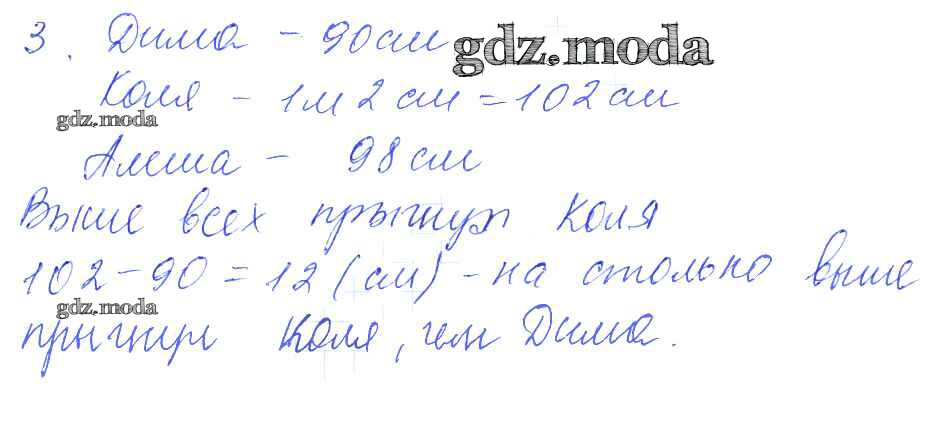 3. Дима - 90 см
gdz.moda
Коля - 1м 2 см = 102 см
gdz.moda
Алеша - 98 см
Выше всех прыгнул Коля
102 - 90 = 12 (см) - на столько выше
gdz.moda
прыгнул Коля, чем Дима.